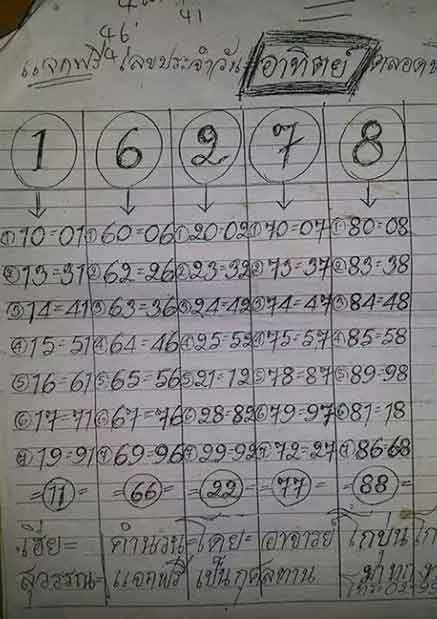 46
41
แจกฟรี เลขประจำวัน อาทิตย์ ตลอด
1 6 2 7 8
①10=01 ①60=06 ①20=02 ①70=07 ①80=08
②13=31 ②62=26 ②23=32 ②73=37 ②83=38
③14=41 ③63=36 ③24=42 ③74=47 ③84=48
④15=51 ④64=46 ④25=52 ④75=57 ④85=58
⑤16=61 ⑤65=56 ⑤21=12 ⑤78=87 ⑤89=98
⑥17=71 ⑥67=76 ⑥28=82 ⑥79=97 ⑥81=18
⑦19=91 ⑦69=96 ⑦29=92 ⑦72=27 ⑦86=68
=11= =66= =22= =77= =88=
เฮีย= คำนวน=โดย= อาจารย์
สุวรรณ= แจกฟรี เป็นกุศลทาน